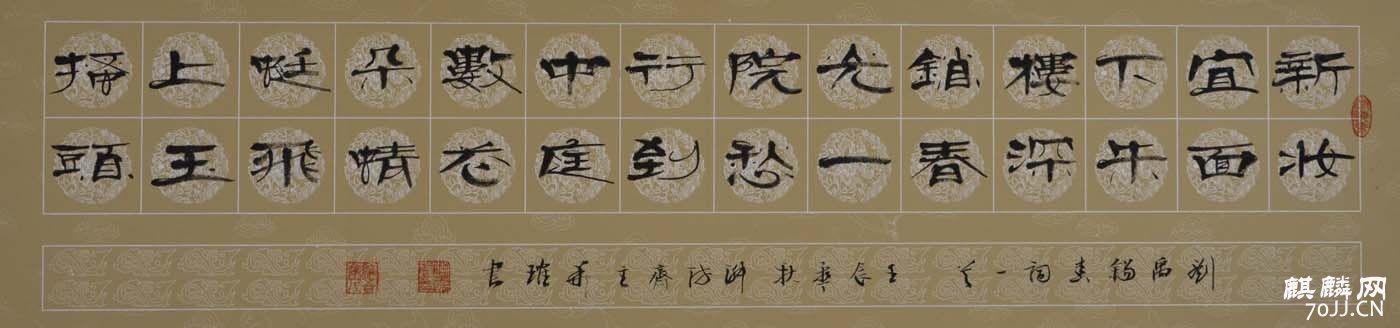 新妆
宜面
下朱
樓深
鎖春
光一
院愁
行到
中庭
數花
朵蜻
蜓飛
上玉
搔頭
劉禹錫春詞一首 壬辰 秋 齋主 書
麒麟网
70JJ.CN